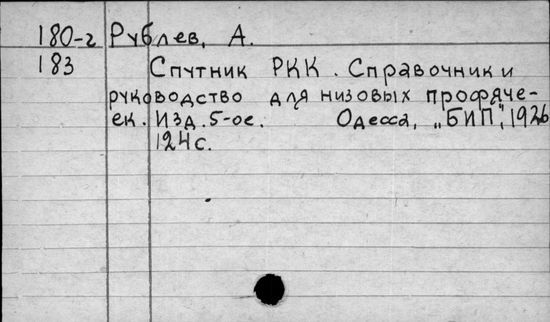 180-г Рублев, А.
183 Спутник РКК. Справочник и
руководство для низовых профяче-
ек. Изд. 5-ое. Одесса, „БИП", 1926
124 с.